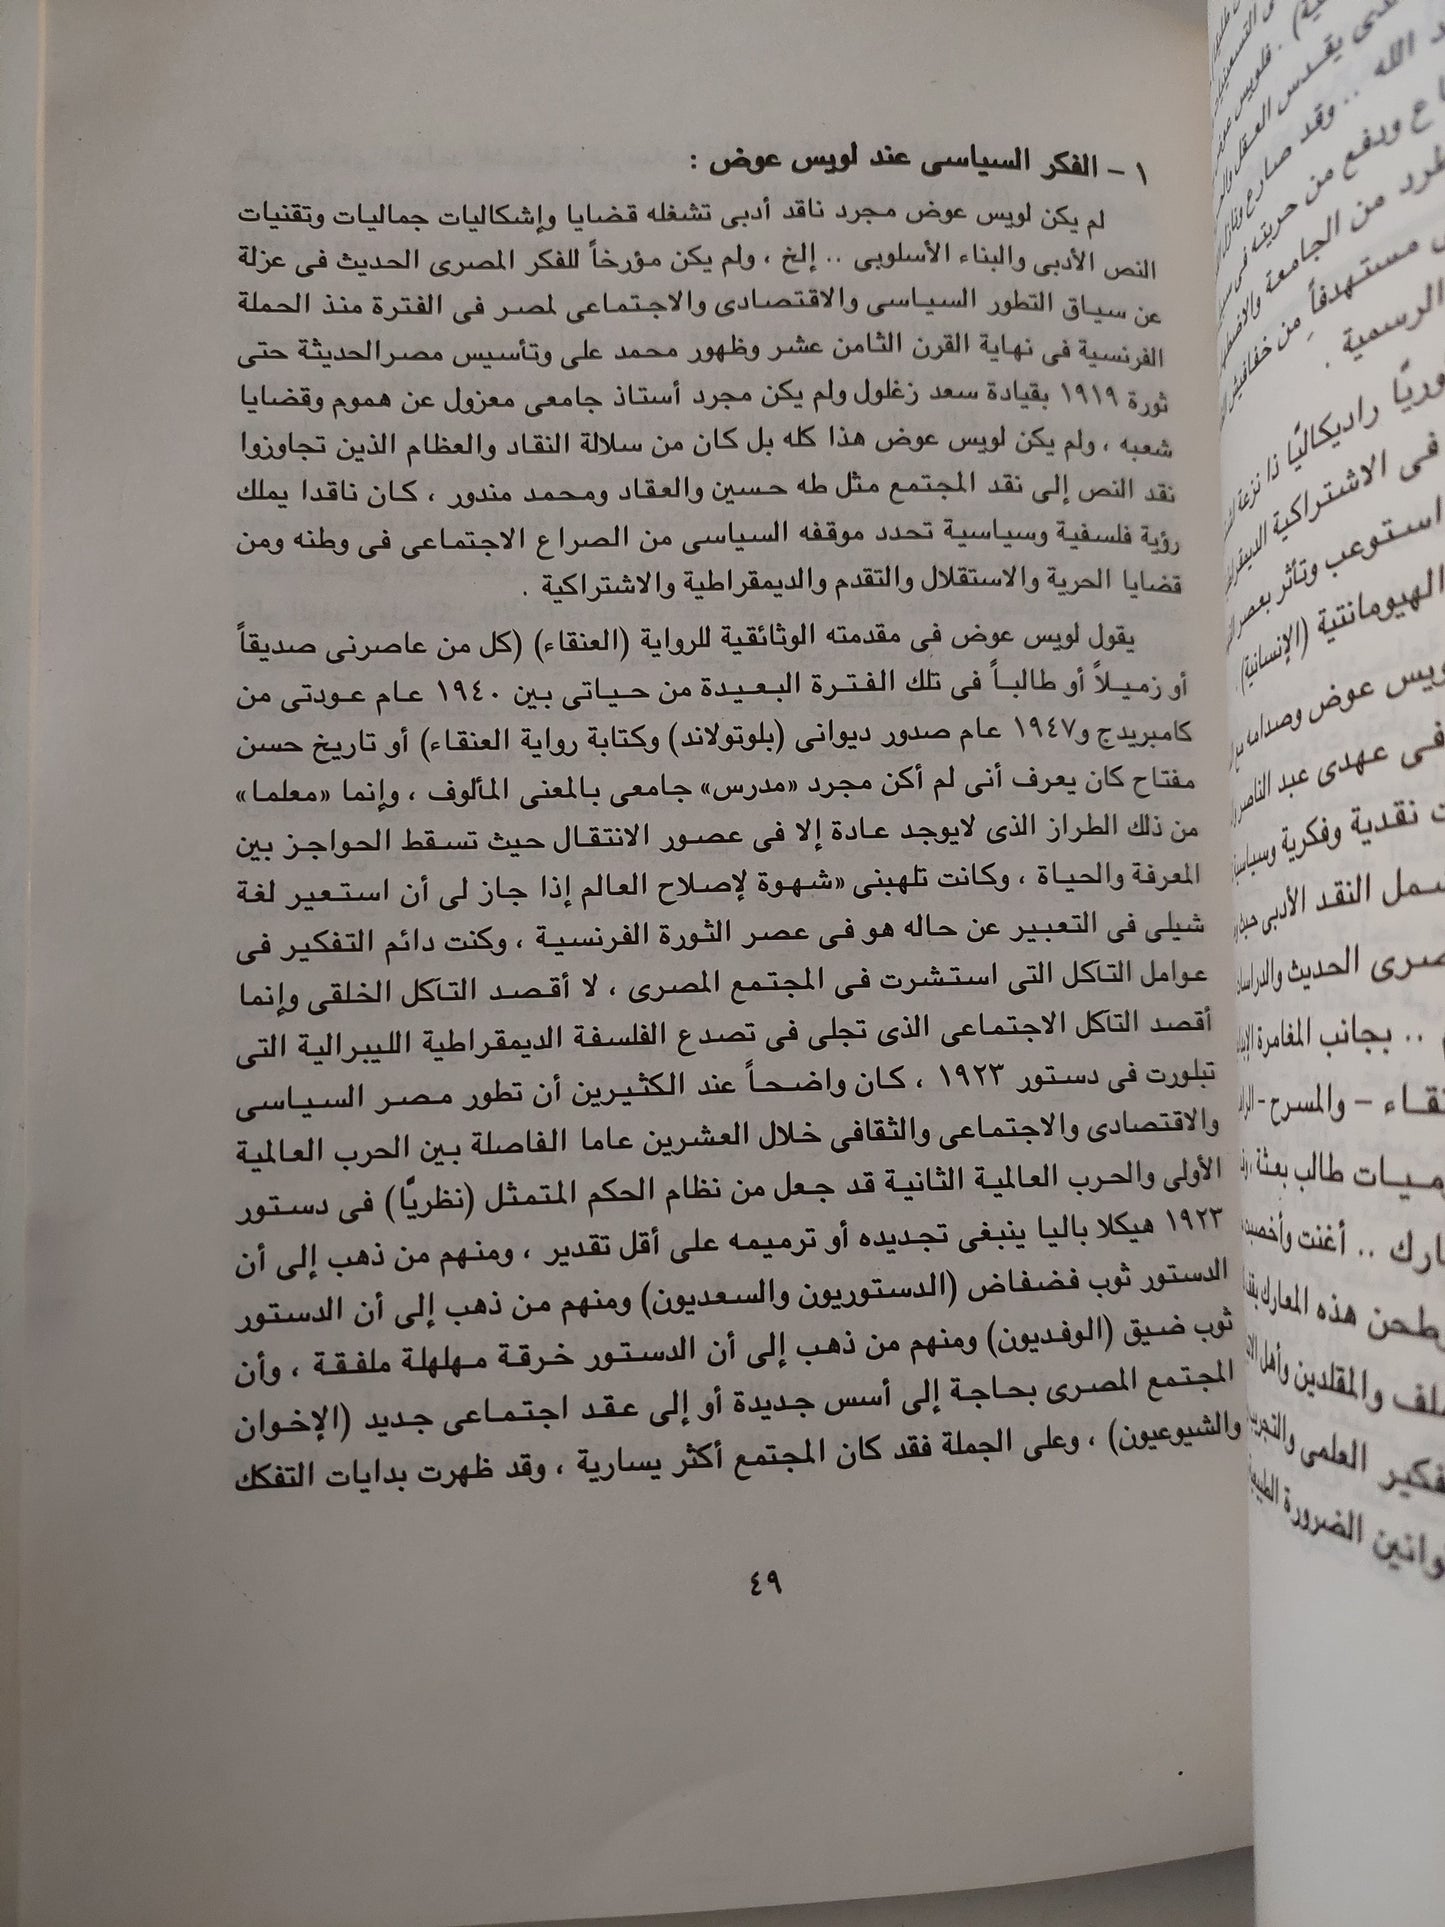 ١ - الفكر السياسى عند لويس عوض :
لم يكن لويس عوض مجرد ناقد أدبى تشغله قضايا وإشكاليات جماليات وتقنيات
النص الأدبى والبناء الأسلوبى .. إلخ ، ولم يكن مؤرخاً للفكر المصرى الحديث فى عزلة
عن سياق التطور السياسى والاقتصادى والاجتماعى لمصر فى الفترة منذ الحملة
الفرنسية فى نهاية القرن الثامن عشر وظهور محمد على وتأسيس مصرالحديثة حتى
ثورة ١٩١٩ بقيادة سعد زغلول ولم يكن مجرد أستاذ جامعى معزول عن هموم وقضايا
شعبه ، ولم يكن لويس عوض هذا كله بل كان من سلالة النقاد والعظام الذين تجاوزوا
نقد النص إلى نقد المجتمع مثل طه حسين والعقاد ومحمد مندور ، كان ناقدا يملك
رؤية فلسفية وسياسية تحدد موقفه السياسى من الصراع الاجتماعى فى وطنه ومن
قضايا الحرية والاستقلال والتقدم والديمقراطية والاشتراكية .
يقول لويس عوض فى مقدمته الوثائقية للرواية (العنقاء) (كل من عاصرنى صديقاً
أو زميلاً أو طالباً فى تلك الفترة البعيدة من حياتى بين ١٩٤٠ عام عودتى من
كامبريدج و١٩٤٧ عام صدور ديوانى (بلوتولاند) وكتابة رواية العنقاء) أو تاريخ حسن
مفتاح كان يعرف أنى لم أكن مجرد «مدرس» جامعى بالمعنى المألوف ، وإنما «معلما»
من ذلك الطراز الذى لايوجد عادة إلا فى عصور الانتقال حيث تسقط الحواجز بين
المعرفة والحياة ، وكانت تلهبنى «شهوة لإصلاح العالم إذا جاز لى أن استعير لغة
شيلى فى التعبير عن حاله هو فى عصر الثورة الفرنسية ، وكنت دائم التفكير فى
عوامل التآكل التى استشرت فى المجتمع المصرى ، لا أقصد التآكل الخلقى وإنما
أقصد التآكل الاجتماعى الذى تجلى فى تصدع الفلسفة الديمقراطية الليبرالية التى
تبلورت فى دستور ١٩٢٣ ، كان واضحاً عند الكثيرين أن تطور مصر السياسى
والاقتصادى والاجتماعى والثقافى خلال العشرين عاما الفاصلة بين الحرب العالمية
الأولى والحرب العالمية الثانية قد جعل من نظام الحكم المتمثل (نظريًا) فى دستور
١٩٢٣ هيكلا باليا ينبغى تجديده أو ترميمه على أقل تقدير ، ومنهم من ذهب إلى أن
الدستور ثوب فضفاض (الدستوريون والسعديون) ومنهم من ذهب إلى أن الدستور
ثوب ضيق (الوفديون) ومنهم من ذهب إلى أن الدستور خرقة مهلهلة ملفقة ، وأن
المجتمع المصرى بحاجة إلى أسس جديدة أو إلى عقد اجتماعى جديد (الإخوان
والشيوعيون) ، وعلى الجملة فقد كان المجتمع أكثر يسارية ، وقد ظهرت بدايات التفكك
٤٩
يقدس العقل
الله .. وقد صارع
ودفع من حريته فى
من الجامعة
مستهدفاً من خفافيش
الرسمية .
راديكاليًا ذا نزعة
فى الاشتراكية
استوعب وتأثر بعصر
الهيومانتية (الإنسانية)
عوض وصدامه
فى عهدى عبد الناصر
نقدية وفكرية
النقد الأدبى
الحديث
.. بجانب المغامرة
والمسرح -
طالب بعثة
.. أغنت
هذه المعارك
والمقلدين وأهل
العلمى
الضرورة